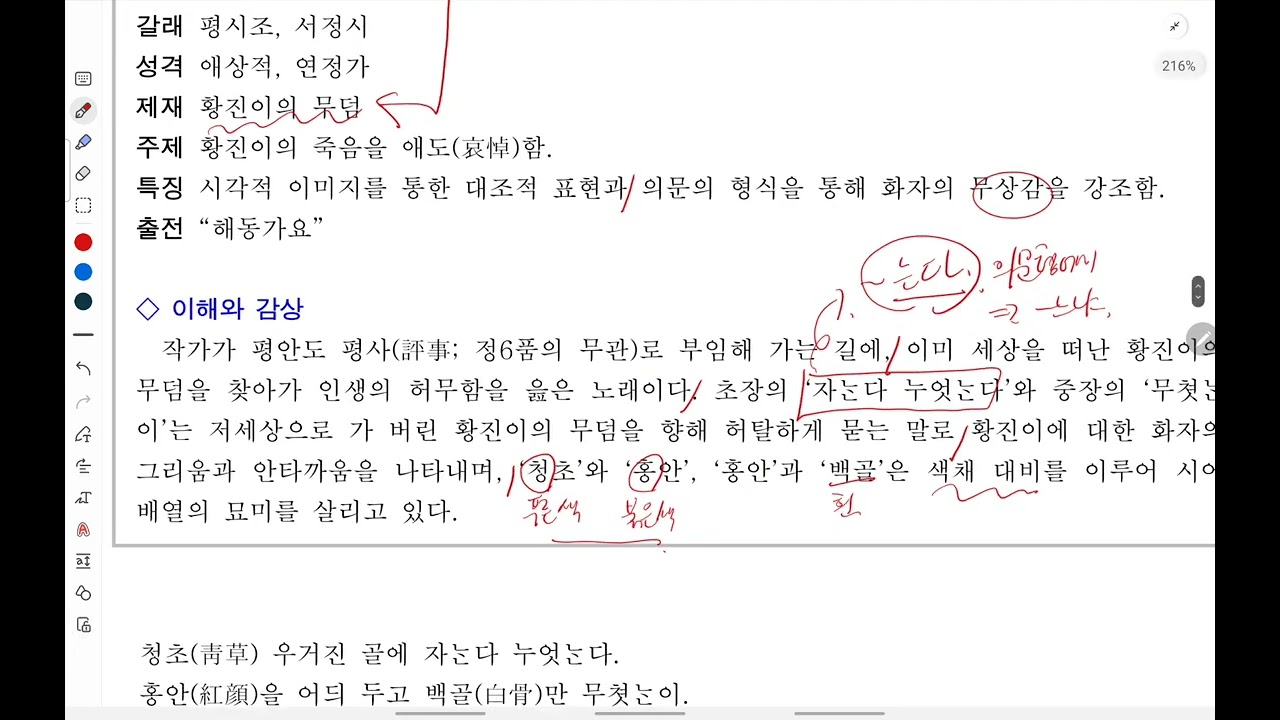 216%
갈래 평시조, 서정시
성격 애상적, 연정가
제재 황진이의 무덤
주제 황진이의 죽음을 애도(哀悼)함.
특징 시각적 이미지를 통한 대조적 표현과 의문의 형식을 통해 화자의 무상감을 강조함.
출전 “해동가요”
~는다. 의문형에서
◇ 이해와 감상
작가가 평안도 평사(評事; 정6품의 무관)로 부임해 가는 길에, 이미 세상을 떠난 황진이의
무덤을 찾아가 인생의 허무함을 읊은 노래이다. 초장의 ‘자는다 누엇는다’와 중장의 ‘무쳣는
이’는 저세상으로 가 버린 황진이의 무덤을 향해 허탈하게 묻는 말로 황진이에 대한 화자의
그리움과 안타까움을 나타내며, ‘청초’와 ‘홍안’, ‘홍안’과 ‘백골’은 색채 대비를 이루어 시어
푸른색 붉은색 흰
배열의 묘미를 살리고 있다.
청초(靑草) 우거진 골에 자는다 누엇는다.
홍안(紅顔)을 어듸 두고 백골(白骨)만 무쳣는이.